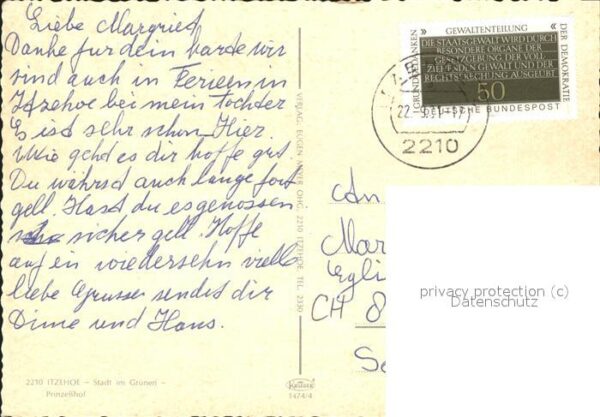 Liebe Margried
Danke für dein karde wir
sind auch in Ferieen in
Itzehoe bei mein tochter
Es ist sehr schön Hier.
Wie gehd es dir hoffe gut.
Du währsd auch lange fort
gell. Hasd du es genossen
sicher gell. Hoffe
auf ein wiedersehn vielle
liebe Grusse sendet dir
Dime und Hans.
2210 ITZEHOE – Stadt im Grünen –
Prinzeßhof
VERLAG: EUGEN MAYER OHG, 2210 ITZEHOE, TEL. 2330
1474/4
GRUNDGEDANKEN
GEWALTENTEILUNG
DER DEMOKRATIE
DIE STAATSGEWALT WIRD DURCH
BESONDERE ORGANE DER
GESETZGEBUNG DER VOLL
ZIEHENDEN GEWALT UND DER
RECHTSPRECHUNG AUSGEÜBT
50
DEUTSCHE BUNDESPOST
2210
An
Mar
Egli
CH 8
privacy protection (c)
Datenschutz